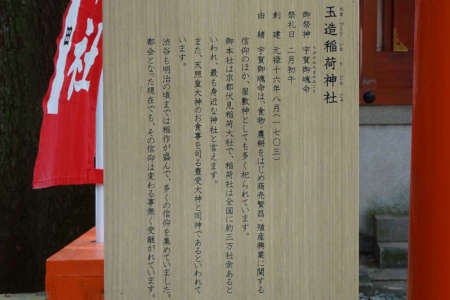 玉造稲荷神社
御祭神 宇賀御魂命
祭礼日 二月初午
創建 元禄十六年八月(一七〇三)
由緒 宇賀御魂命は、食物・農耕をはじめ商売繁昌・殖産興業に関する
信仰のほか、屋敷神としても多く祀られています。
御本社は京都伏見稲荷大社で、稲荷社は全国に約三万社余あると
いわれ、最も身近な神社と言えます。
また、天照皇大神のお食事を司る豊受大神と同神であるといわれて
います。
渋谷も明治の頃までは稲作が盛んで、多くの信仰を集めていました。
都会となった現在でも、その信仰は変わる事無く受継がれています。
社